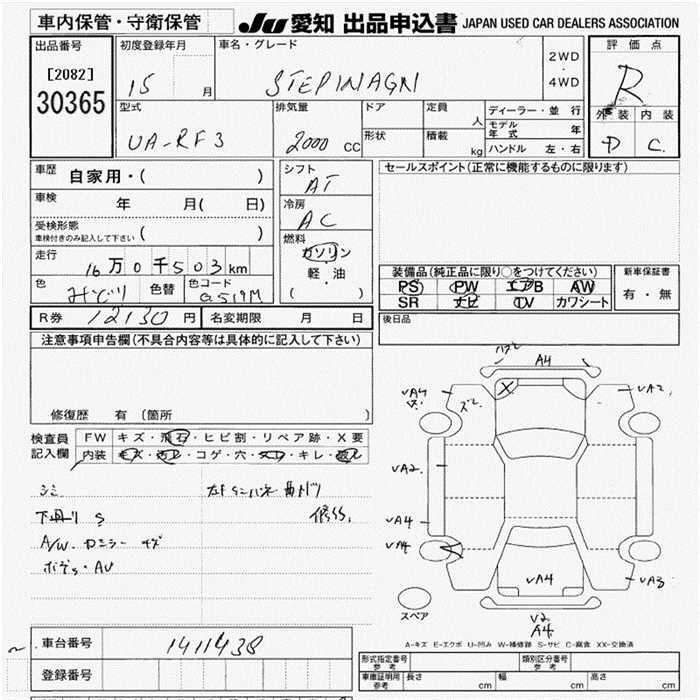 車内保管・守衛保管
JU 愛知 出品申込書 JAPAN USED CAR DEALERS ASSOCIATION
出品番号
[2082]
30365
初度登録年月
15 月
車名・グレード
STEPWAGN
2WD
・
4WD
評価点
R
外装 内装
D C.
型式
UA-RF3
排気量
2000 CC
ドア
形状
定員
人
積載
kg
ディーラー・並行
モデル年式 年
ハンドル 左・右
車歴
自家用・( )
車検
年 月( 日)
受検形態
車検付きのみ記入して下さい ( )
走行
16万0千503km
色
みどり
色替
色コード
G519M
シフト
AT
冷房
AC
燃料
ガソリン
軽・油
( )
セールスポイント(正常に機能するものに限ります)
装備品(純正品に限り○をつけてください)
PS PW エアB AW
SR ナビ TV カワシート
新車保証書
有・無
後日品
R券 12130円
名変期限 月 日
注意事項申告欄(不具合内容等は具体的に記入して下さい)
修復歴 有 (箇所 )
検査員
記入欄
FW キズ・飛石・ヒビ割・リペア跡・X要
内装 キズ・汚レ・コゲ・穴・スレ・キレ・破レ
シミ
下廻り S
A/W. キズ
ボディ・AU
A4
X
UA4
UA2
UA2.
UA4
UA4
UA4
UA3
U2
A4
スペア
A-キズ E-エクボ U-凹み W-補修跡 S-サビ C-腐食 XX-交換済
車台番号
1411438
登録番号
形式指定番号
参考
類別区分番号
参考
車庫証明用
参考
長さ cm
幅 cm
高さ cm